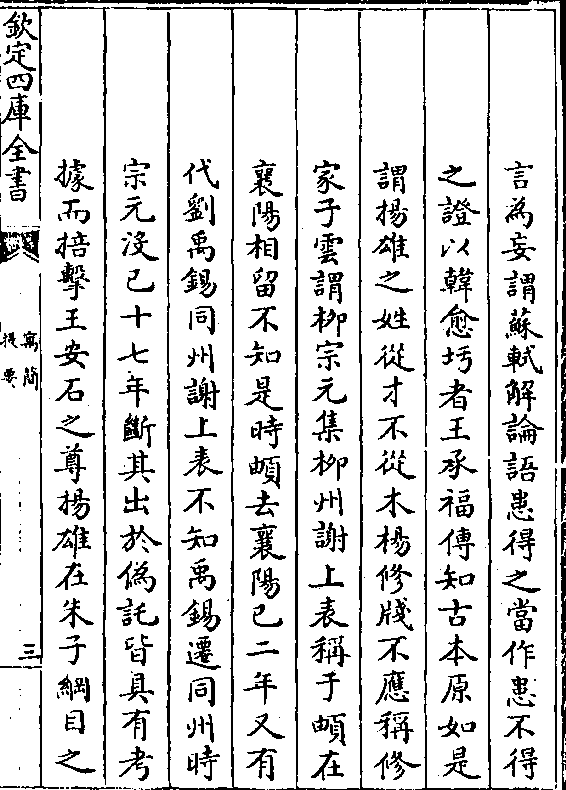 言為妄謂蘇軾解論語患得之當作患不得
之證以韓愈圬者王承福傳知古本原如是
謂揚雄之姓從才不從木楊修牋不應稱修
家子雲謂柳宗元集柳州謝上表稱于頔在
襄陽相留不知是時頔去襄陽已二年又有
代劉禹錫同州謝上表不知禹錫遷同州時
宗元沒已十七年斷其出於偽託皆具有考
據而掊擊王安石之尊揚雄在朱子綱目之
欽定四庫全書
寓簡
提要
三